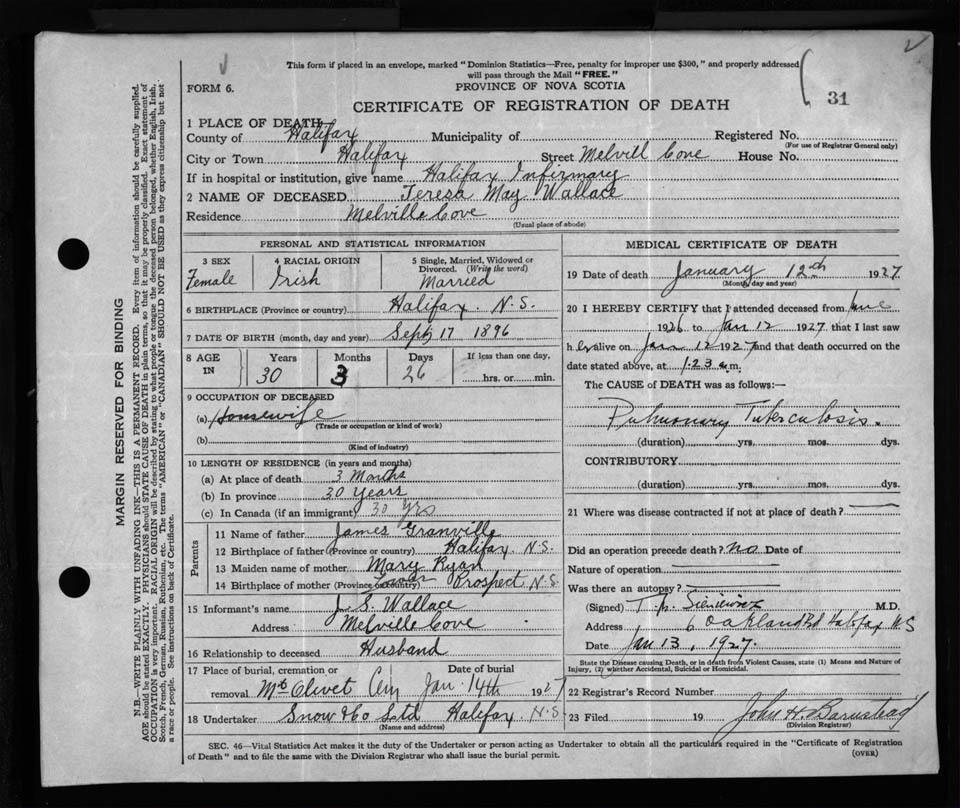 This form if placed in an envelope, marked "Dominion Statistics—Free, penalty for improper use $300," and properly addressed
will pass through the Mail "FREE."
FORM 6.
PROVINCE OF NOVA SCOTIA
31
CERTIFICATE OF REGISTRATION OF DEATH
1 PLACE OF DEATH
County of Halifax Municipality of Registered No.
(For use of Registrar General only)
City or Town Halifax Street Melvill Cove House No.
If in hospital or institution, give name Halifax Infirmary
2 NAME OF DECEASED Teresa May Wallace
Residence Melville Cove
(Usual place of abode)
PERSONAL AND STATISTICAL INFORMATION
3 SEX 4 RACIAL ORIGIN 5 Single, Married, Widowed or
Divorced. (Write the word)
Female Irish Married
6 BIRTHPLACE (Province or country) Halifax. N.S.
7 DATE OF BIRTH (month, day and year) Sept 17 1896
8 AGE IN Years Months Days If less than one day,
30 3 26 hrs. or min.
9 OCCUPATION OF DECEASED
(a) Housewife
(Trade or occupation or kind of work)
(b)
(Kind of industry)
10 LENGTH OF RESIDENCE (in years and months)
(a) At place of death 3 Months
(b) In province 30 Years
(c) In Canada (if an immigrant) 30 Yrs
Parents
11 Name of father James Granville
12 Birthplace of father (Province or country) Halifax N.S.
13 Maiden name of mother Mary Ryan
14 Birthplace of mother (Province or country) Lower Prospect N.S
15 Informant's name J. S. Wallace
Address Melville Cove
16 Relationship to deceased Husband
17 Place of burial, cremation or Date of burial
removal Mt Olivet Cem Jan. 14th 1927
18 Undertaker Snow & Co Ltd Halifax N.S
(Name and address)
MEDICAL CERTIFICATE OF DEATH
19 Date of death January 12th 1927
(Month, day and year)
20 I HEREBY CERTIFY that I attended deceased from June
1926 to Jan 12 1927 that I last saw
h er alive on Jan 12 1927 and that death occurred on the
date stated above, at 1.23 a.m.
The CAUSE of DEATH was as follows:—
Pulmonary Tuberculosis.
(duration) yrs. mos. dys.
CONTRIBUTORY
(duration) yrs. mos. dys.
21 Where was disease contracted if not at place of death?
Did an operation precede death? no Date of
Nature of operation
Was there an autopsy?
(Signed) M.D.
Address 6 Oakland Rd Halifax NS
Date Jan 13, 1927.
State the Disease causing Death, or in death from Violent Causes, state (1) Means and Nature of
Injury, (2) whether Accidental, Suicidal or Homicidal.
22 Registrar's Record Number
23 Filed 19 John H. Barnstead
(Division Registrar)
SEC. 46—Vital Statistics Act makes it the duty of the Undertaker or person acting as Undertaker to obtain all the particulars required in the "Certificate of Registration
of Death" and to file the same with the Division Registrar who shall issue the burial permit.
(OVER)
MARGIN RESERVED FOR BINDING
N.B.—WRITE PLAINLY WITH UNFADING INK—THIS IS A PERMANENT RECORD. Every item of information should be carefully supplied.
AGE should be stated EXACTLY. PHYSICIANS should STATE CAUSE OF DEATH in plain terms, so that it may be properly classified. Exact statement of
OCCUPATION is very important. RACIAL ORIGIN will be described by stating to what people or tongue the deceased person belonged, whether English, Irish,
Scotch, French, German, Russian, Ruthenian, etc. The terms "AMERICAN" or "CANADIAN" SHOULD NOT BE USED as they express citizenship but not
a race or people. See instructions on back of Certificate.